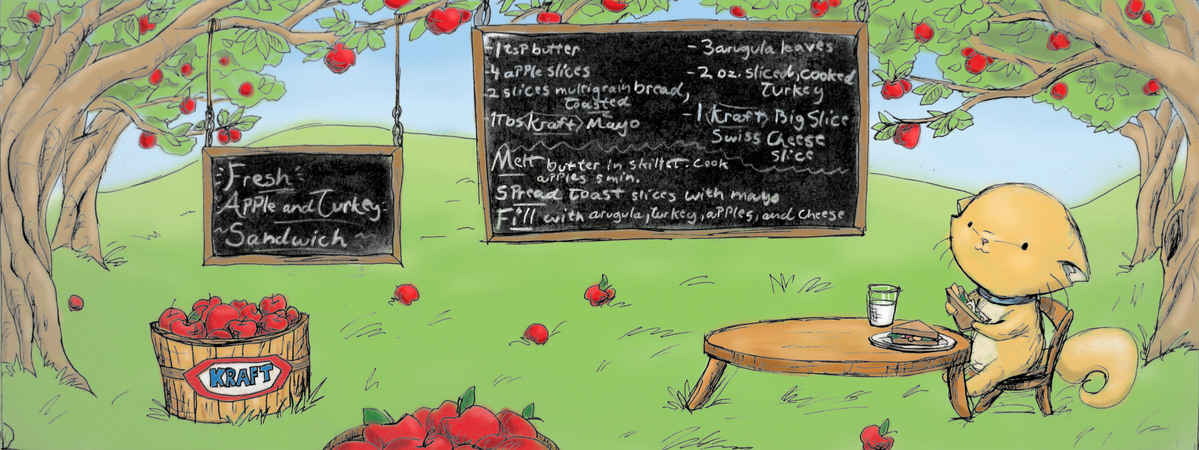 Fresh
Apple and Turkey
~Sandwich~
-1 tsp butter
-4 apple slices
-2 slices multigrain bread,
toasted
-1 Tbs Kraft Mayo
-3 arugula leaves
-2 oz. sliced, cooked
Turkey
-1 Kraft Big Slice
Swiss Cheese
slice
Melt butter in skillet. Cook
apples 5 min.
Spread toast slices with mayo
Fill with arugula, turkey, apples, and cheese
KRAFT